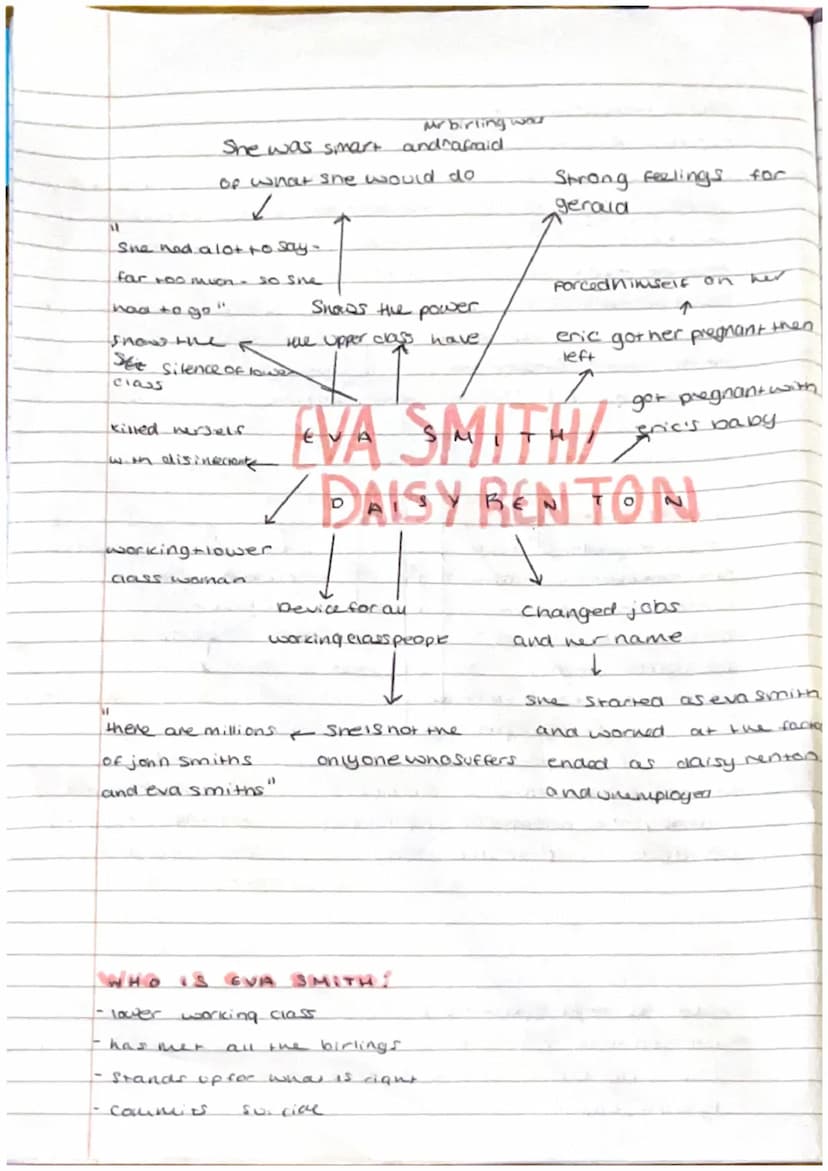 Mr birling was
She was smart and ^ afraid
of what she would do
Strong feelings for
gerald
"
She had a lot to say -
far too much - so she
had to go"
shows the
silence of lower
class
Shows the power
the upper class have
forced himself on her
eric got her pregnant then
left
got pregnant with
eric's baby
killed herself
with disinfectant
EVA SMITH/
DAISY RENTON
working + lower
class woman
Device for all
working class people
Changed jobs
and her name
"
there are millions
of john smiths
and eva smiths"
She is not the
only one who suffers
She started as eva smith
and worked at the facto
ended as daisy renton
and unemployed
WHO IS EVA SMITH?
- lower working class
- has met all the birlings
- Stands up for what is right
- Commits suicide